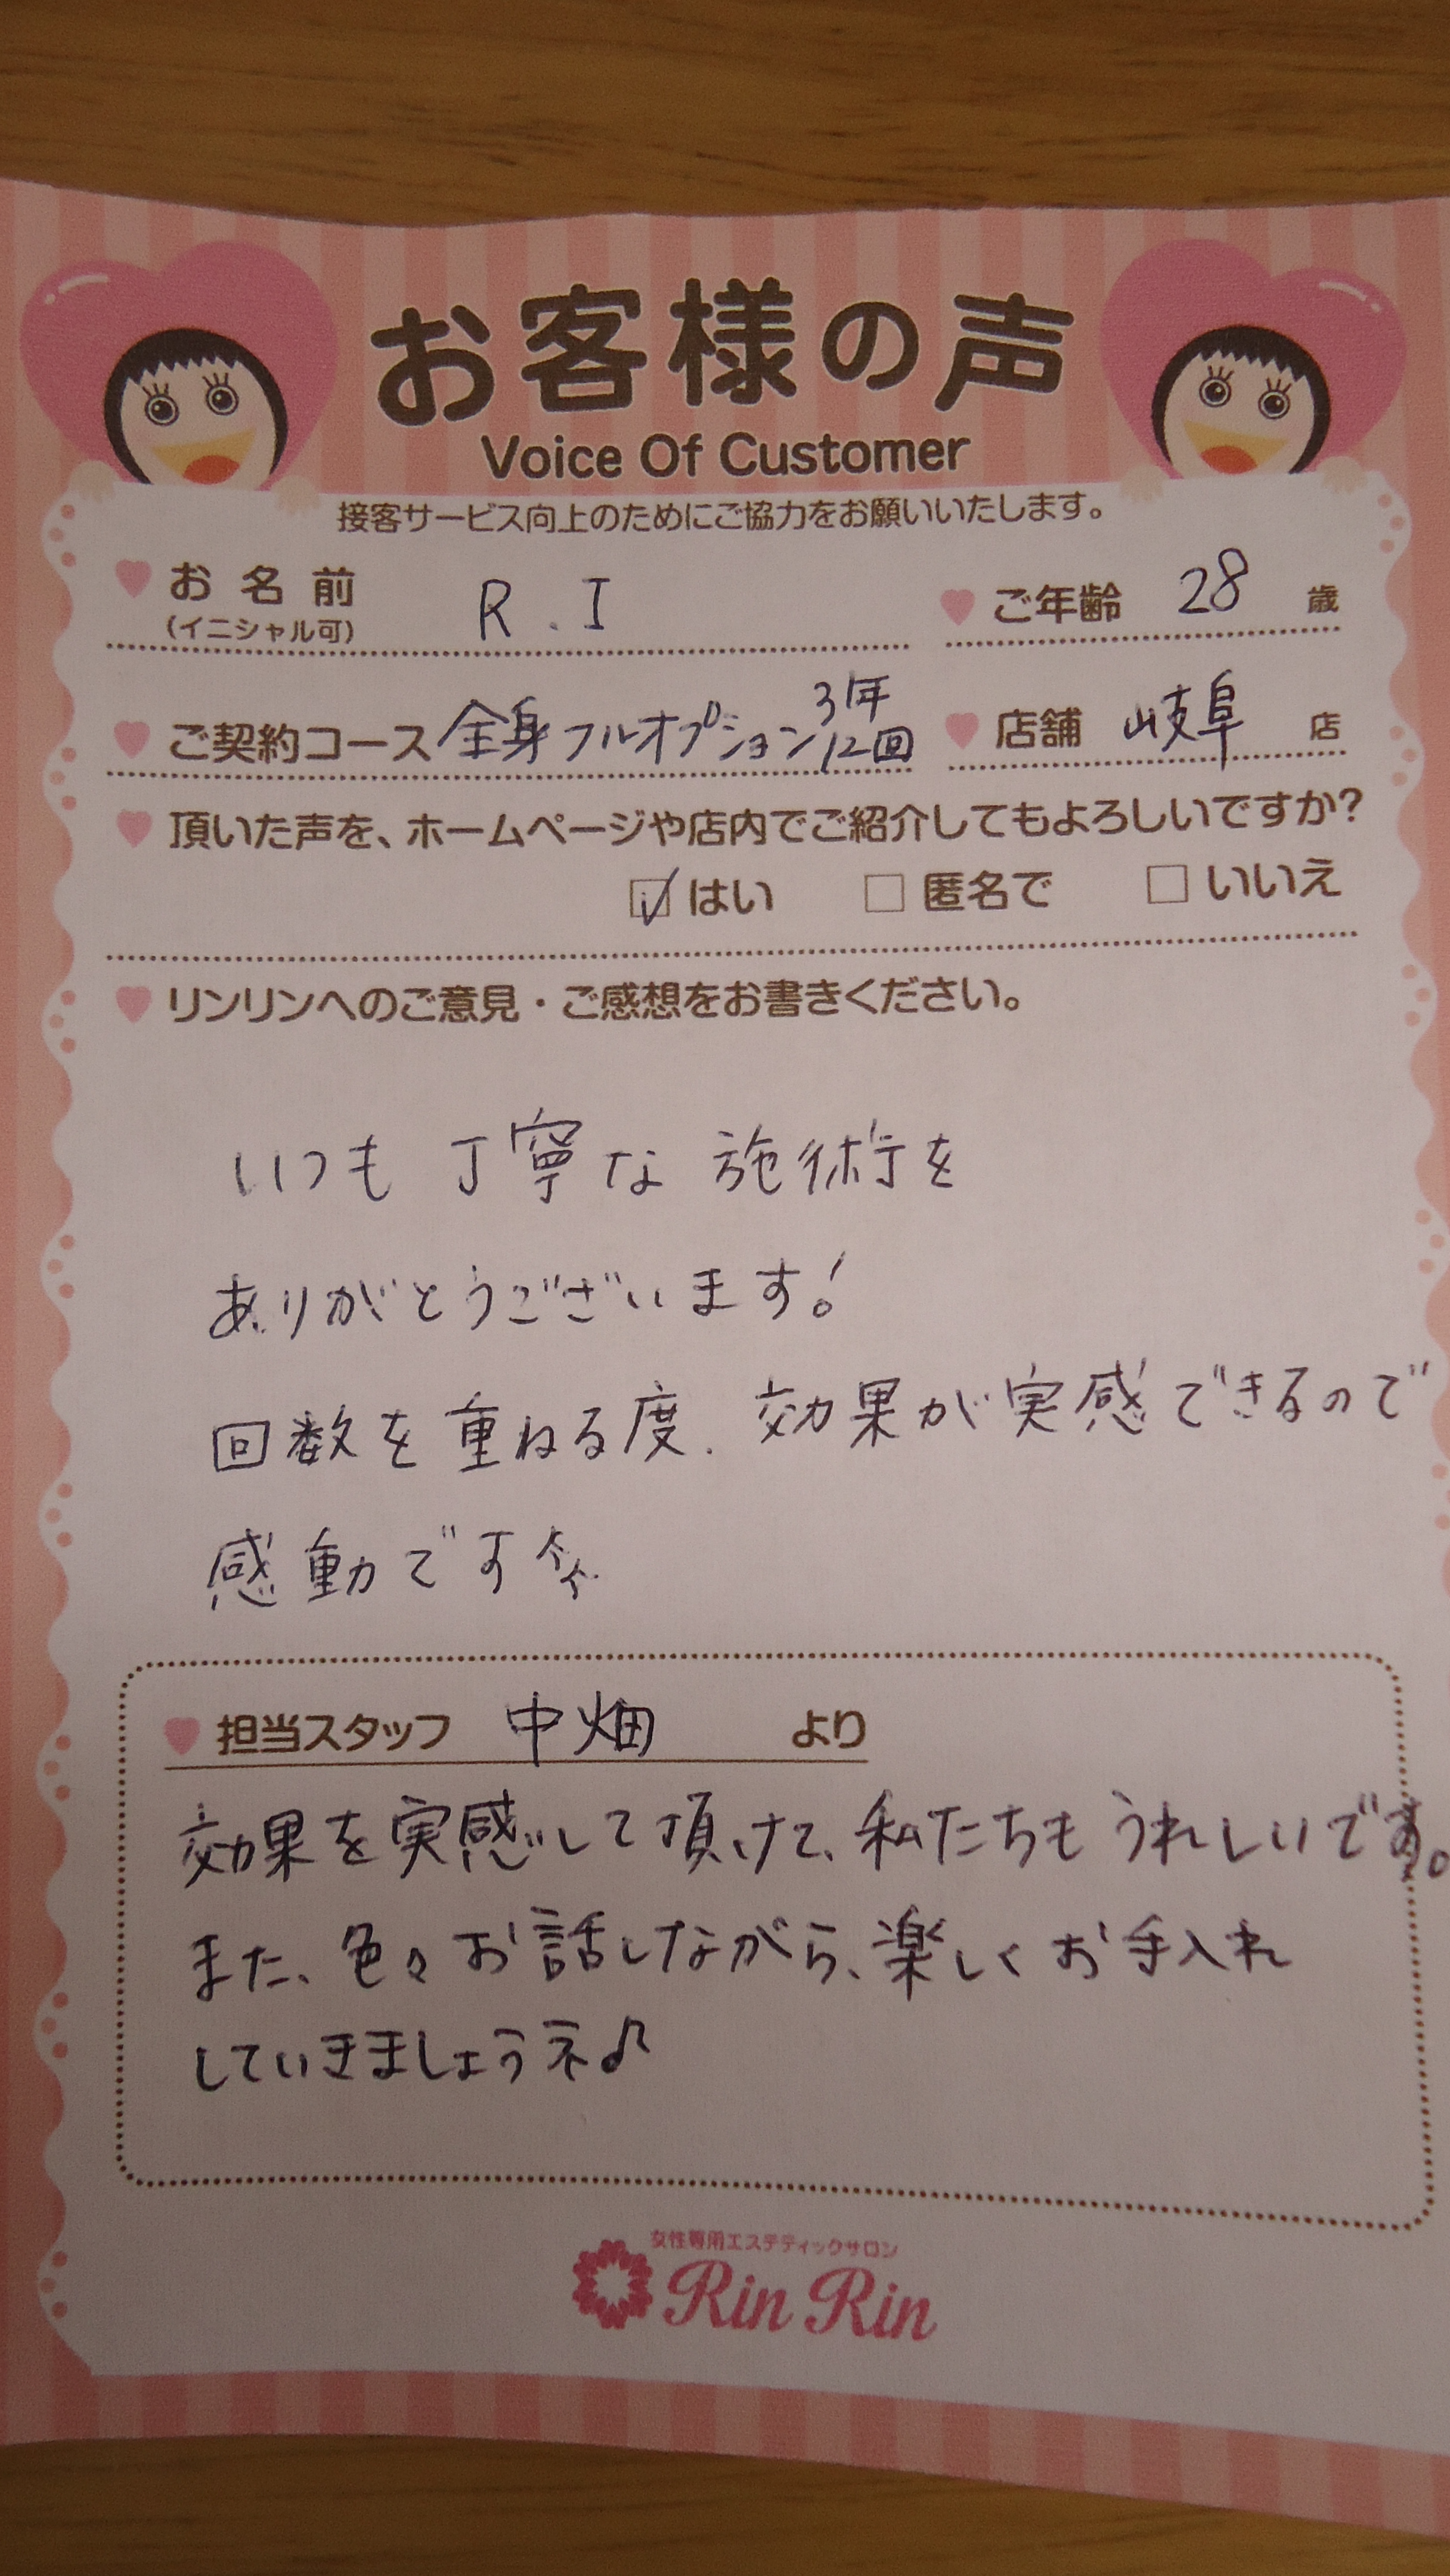 お客様の声
Voice Of Customer
接客サービス向上のためにご協力をお願いいたします。
お名前 R.I ご年齢 28 歳
(イニシャル可)
ご契約コース 全身フルオプション 3年12回 店舗 岐阜 店
頂いた声を、ホームページや店内でご紹介してもよろしいですか?
☑はい □匿名で □いいえ
リンリンへのご意見・ご感想をお書きください。
いつも丁寧な施術を
ありがとうございます!
回数を重ねる度、効果が実感できるので
感動です
担当スタッフ 中畑 より
効果を実感して頂けて、私たちもうれしいです。
また、色々お話しながら、楽しくお手入れ
していきましょうネ♪
女性専用エステティックサロン
Rin Rin